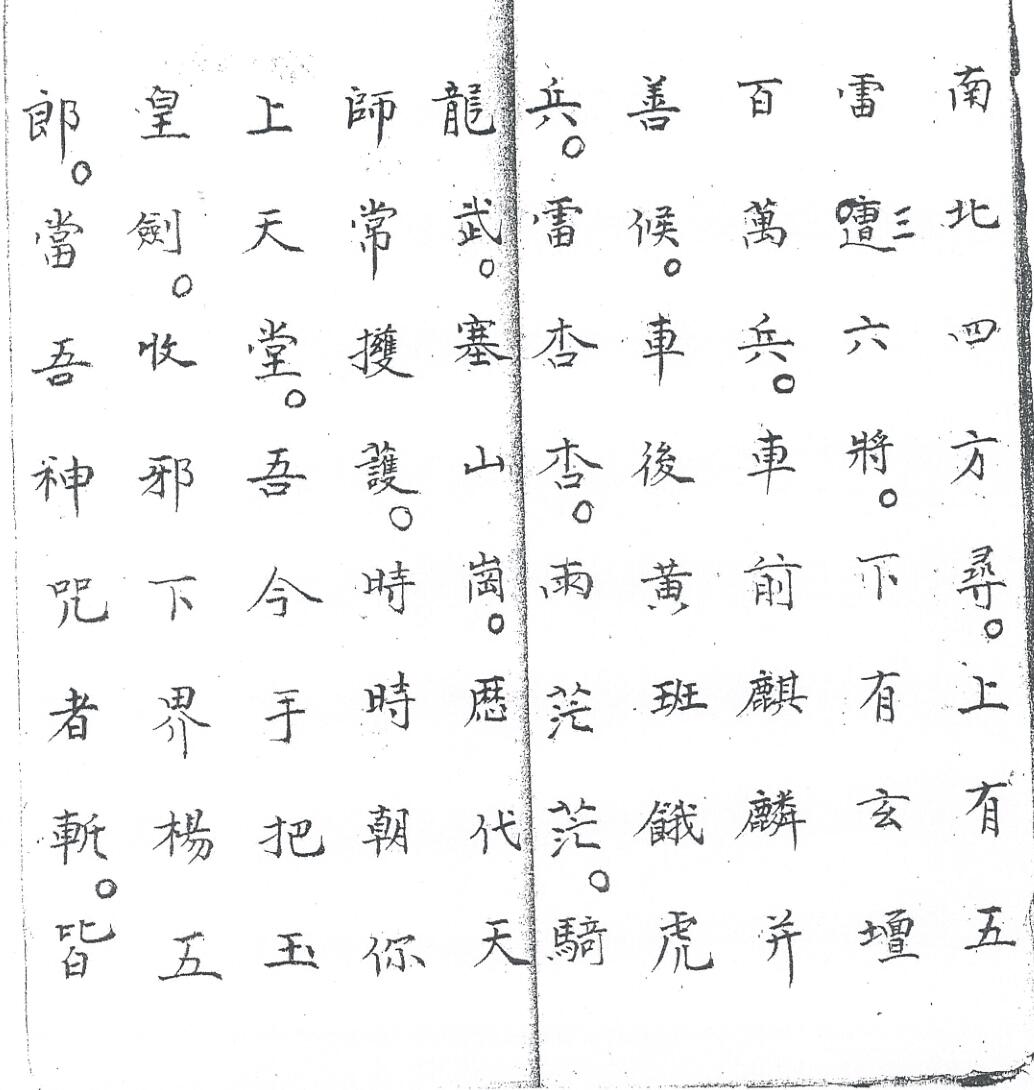 南北四方尋。上有五
雷三遭六將。下有玄壇
百萬兵。車前麒麟并
善候。車後黃班餓虎
兵。雷杏杏。雨茫茫。騎
龍武。塞山崗。歷代天
師常擁護。時時朝你
上天堂。吾今手把玉
皇劍。收邪下界楊五
郎。當吾神咒者斬。皆